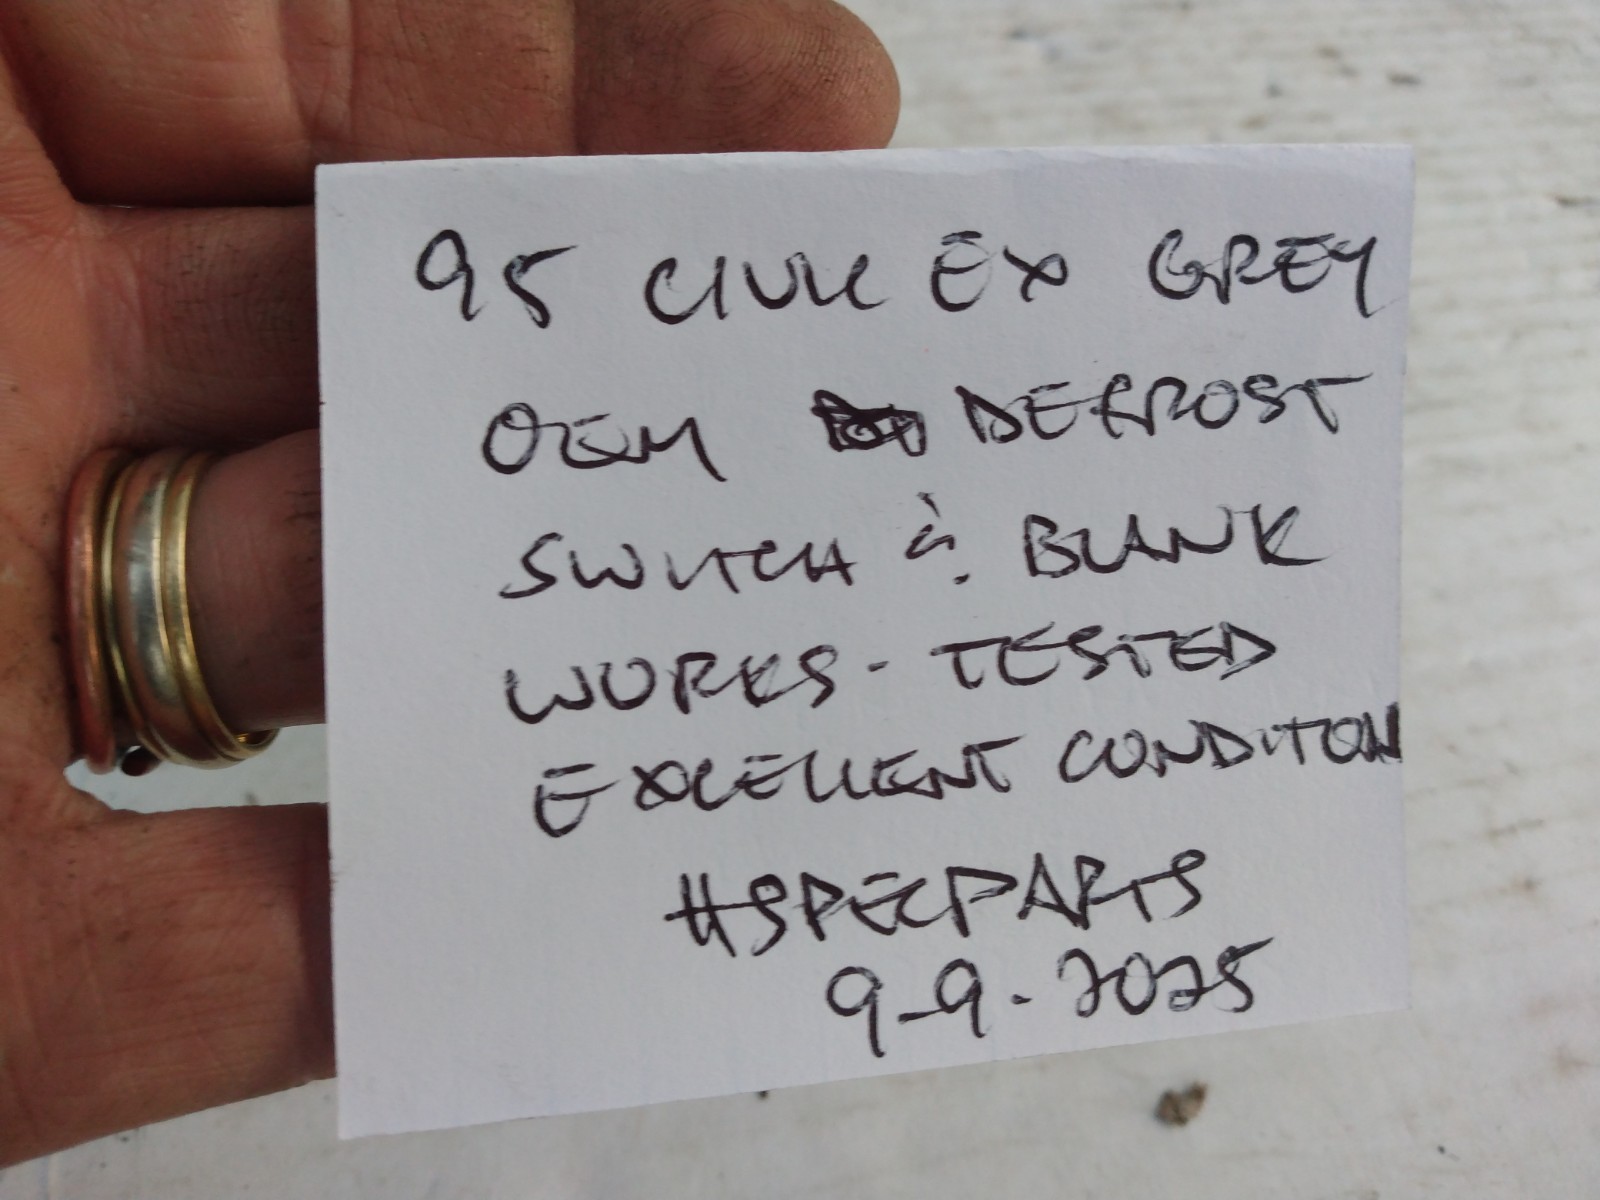 95 CIVIC EX GREY
OEM DEFROST
SWITCH & BLANK
WORKS - TESTED
EXCELLENT CONDITION
#SPECPARTS
9-9-2025